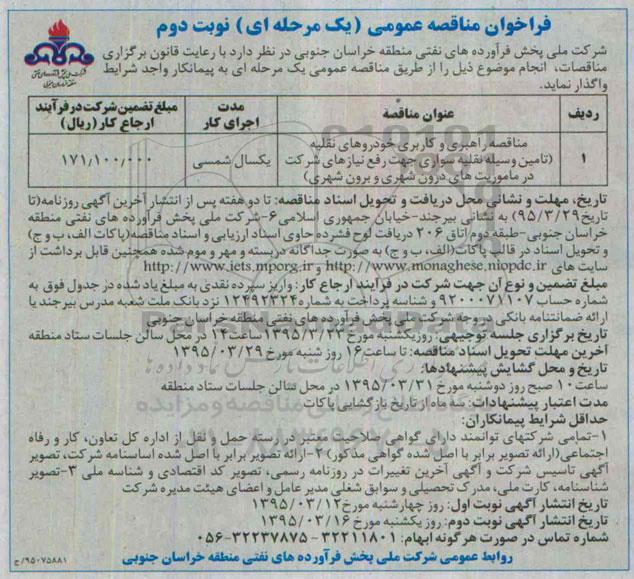 فراخوان مناقصه عمومی (یک مرحله ای) نوبت دوم
شرکت ملی پخش فرآورده های نفتی منطقه خراسان جنوبی در نظر دارد با رعایت قانون برگزاری
مناقصات، انجام موضوع ذیل را از طریق مناقصه عمومی یک مرحله ای به پیمانکار واجد شرایط
واگذار نماید.
ردیف عنوان مناقصه مدت اجرای کار مبلغ تضمین شرکت در فرآیند ارجاع کار (ریال)
۱ مناقصه راهبری و کاربری خودروهای نقلیه
(تامین وسیله نقلیه سواری جهت رفع نیازهای شرکت
در ماموریت های درون شهری و برون شهری)
یکسال شمسی ۱۷۱/۱۰۰/۰۰۰
تاریخ، مهلت و نشانی محل دریافت و تحویل اسناد مناقصه: تا دو هفته پس از انتشار آخرین آگهی روزنامه (تا
تاریخ ۹۵/۳/۲۹) به نشانی بیرجند-خیابان جمهوری اسلامی ۶-شرکت ملی پخش فرآورده های نفتی منطقه
خراسان جنوبی-طبقه دوم اتاق ۲۰۶ دریافت لوح فشرده حاوی اسناد ارزیابی و اسناد مناقصه (پاکات الف، ب و ج)
و تحویل اسناد در قالب پاکات (الف، ب و ج) به صورت جداگانه دربسته و مهر و موم شده همچنین قابل برداشت از
سایت های http://www.monaghese.niopdc.ir و http://www.iets.mporg.ir
مبلغ تضمین و نوع آن جهت شرکت در فرآیند ارجاع کار: واریز سپرده نقدی به مبلغ یاد شده در جدول فوق به
شماره حساب ۹۲۰۰۰۷۱۱۰۷ و شناسه پرداخت به شماره ۱۲۴۹۲۳۲۴ نزد بانک ملت شعبه مدرس بیرجند یا
ارائه ضمانتنامه بانکی در وجه شرکت ملی پخش فرآورده های نفتی منطقه خراسان جنوبی
تاریخ برگزاری جلسه توجیهی: روز یکشنبه مورخ ۱۳۹۵/۳/۲۳ ساعت ۱۲ در محل سالن جلسات ستاد منطقه
آخرین مهلت تحویل اسناد مناقصه: تا ساعت ۱۶ روز شنبه مورخ ۱۳۹۵/۰۳/۲۹
تاریخ و محل گشایش پیشنهادها:
ساعت ۱۰ صبح روز دوشنبه مورخ ۱۳۹۵/۰۳/۳۱ در محل سالن جلسات ستاد منطقه
مدت اعتبار پیشنهادات: سه ماه از تاریخ بازگشایی پاکات
حداقل شرایط پیمانکاران:
۱-تمامی شرکتهای توانمند دارای گواهی صلاحیت معتبر در رسته حمل و نقل از اداره کل تعاون، کار و رفاه
اجتماعی (ارائه تصویر برابر با اصل شده گواهی مذکور) ۲-ارائه تصویر برابر با اصل شده اساسنامه شرکت، تصویر
آگهی تاسیس شرکت و آگهی آخرین تغییرات در روزنامه رسمی، تصویر کد اقتصادی و شناسه ملی ۳-تصویر
شناسنامه، کارت ملی، مدرک تحصیلی و سوابق شغلی مدیر عامل و اعضای هیئت مدیره شرکت
تاریخ انتشار آگهی نوبت اول: روز چهارشنبه مورخ ۱۳۹۵/۰۳/۱۲
تاریخ انتشار آگهی نوبت دوم: روز یکشنبه مورخ ۱۳۹۵/۰۳/۱۶
شماره تماس در صورت هرگونه ابهام: ۳۲۲۱۱۸۰۱-۳۲۲۳۷۸۷۵-۰۵۶
روابط عمومی شرکت ملی پخش فرآورده های نفتی منطقه خراسان جنوبی
۹۵۰۷۵۸۸۱/ج